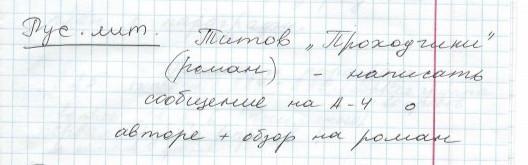 Рус. лит. Титов „Проходчики"
(роман) - написать
сообщение на А-4 о
авторе + обзор на роман